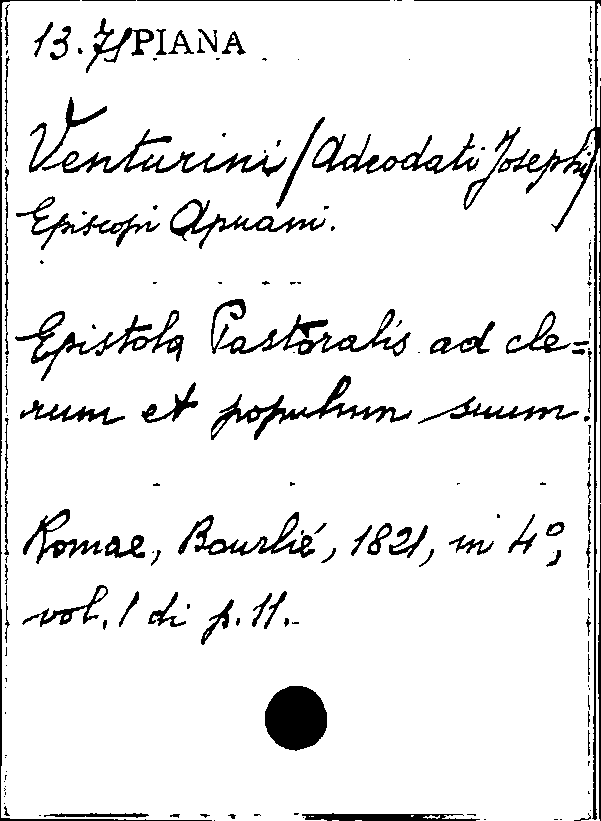 13.71 PIANA
Venturini (Adeodati Josephi)
Episcopi Apuani.
Epistola Pastoralis ad cle=
rum et populum suum.
Romae, Bourlié, 1821, in 4°,
vol. 1 di p. 11.